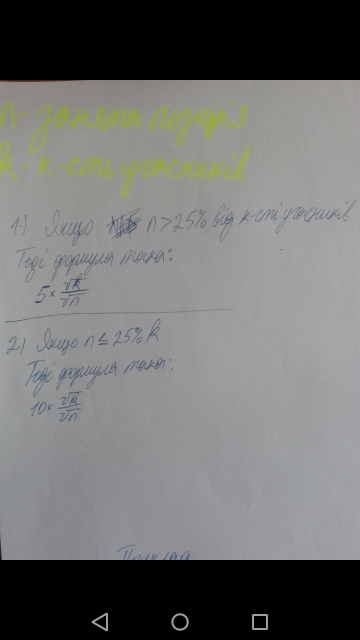 n - зайнята позиція
k - к-сть учасників
1.) Якщо n > 25% від к-сті учасників
Тоді формула така:
5 × √k/√n
2.) Якщо n ≤ 25% k
Тоді формула така:
10 × √k/√n
Приклад